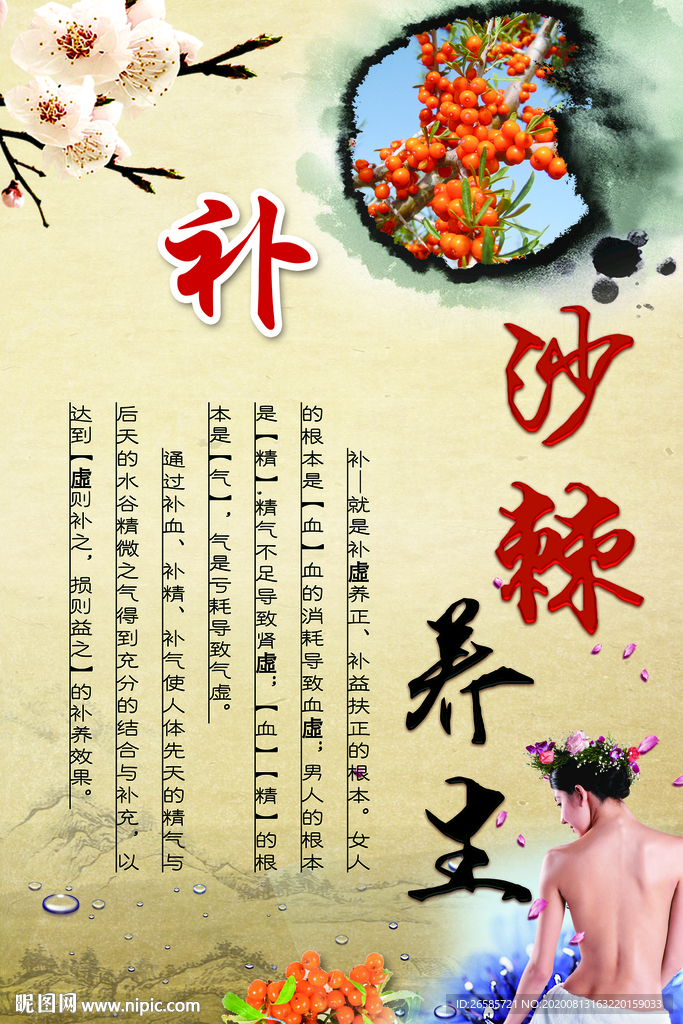 补
沙棘
养生
补—就是补虚养正、补益扶正的根本。女人
的根本是【血】血的消耗导致血虚；男人的根本
是【精】,精气不足导致肾虚；【血】【精】的根
本是【气】，气是亏耗导致气虚。
通过补血、补精、补气使人体先天的精气与
后天的水谷精微之气得到充分的结合与补充，以
达到【虚则补之，损则益之】的补养效果。
昵图网 www.nipic.com
ID:26585721 NO:20200813163220159033